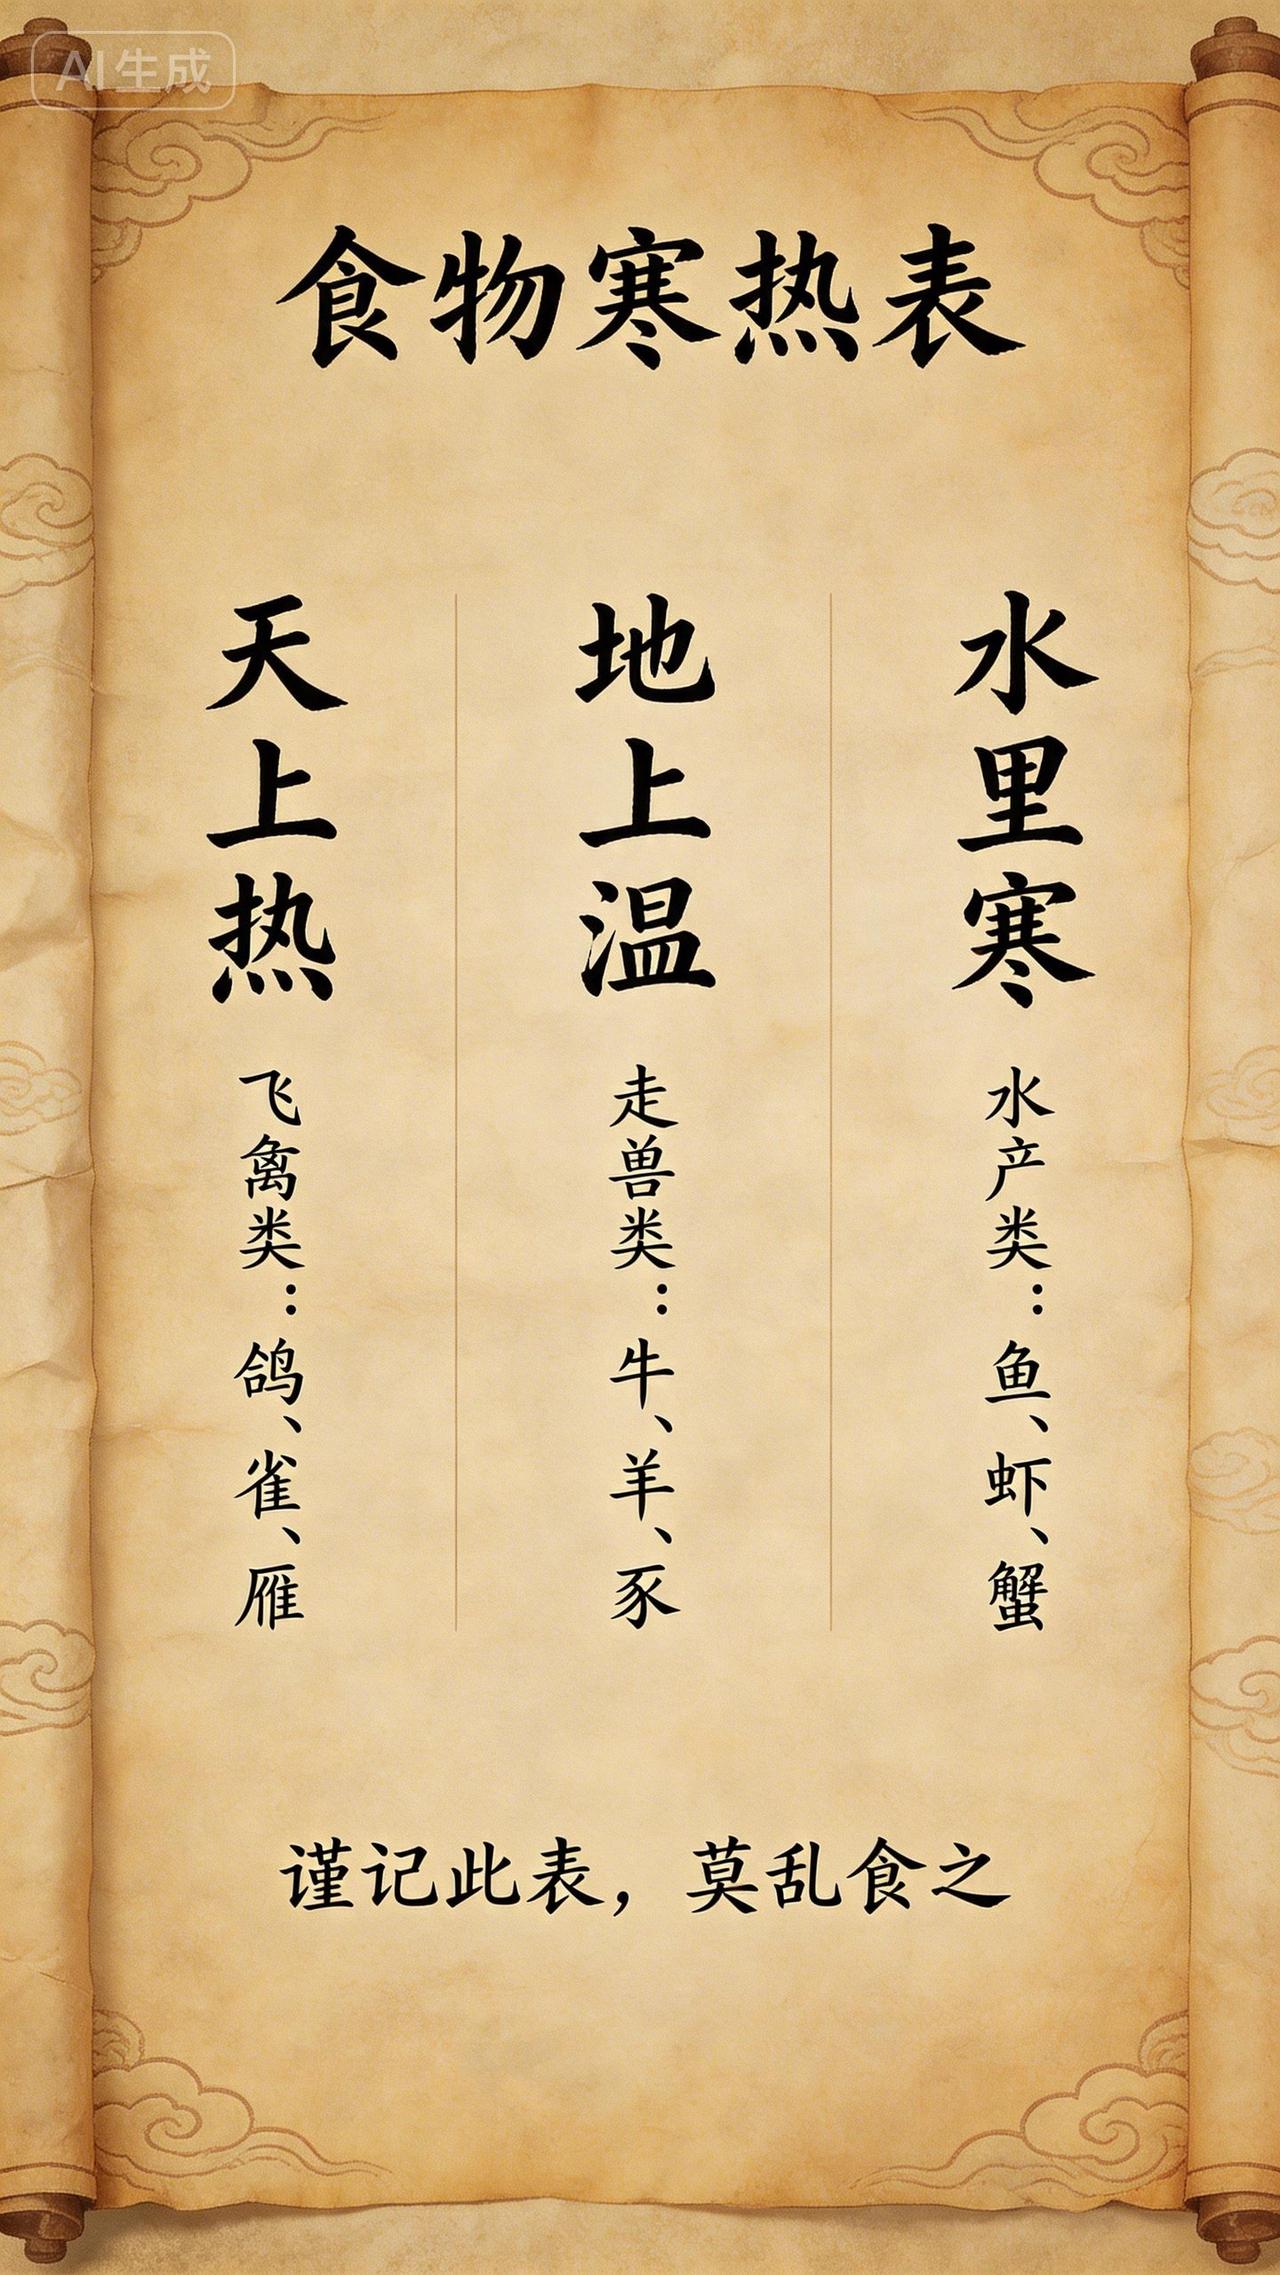 AI生成
食物寒热表
天上热
飞禽类：鸽、雀、雁
地上温
走兽类：牛、羊、豕
水里寒
水产类：鱼、虾、蟹
谨记此表，莫乱食之